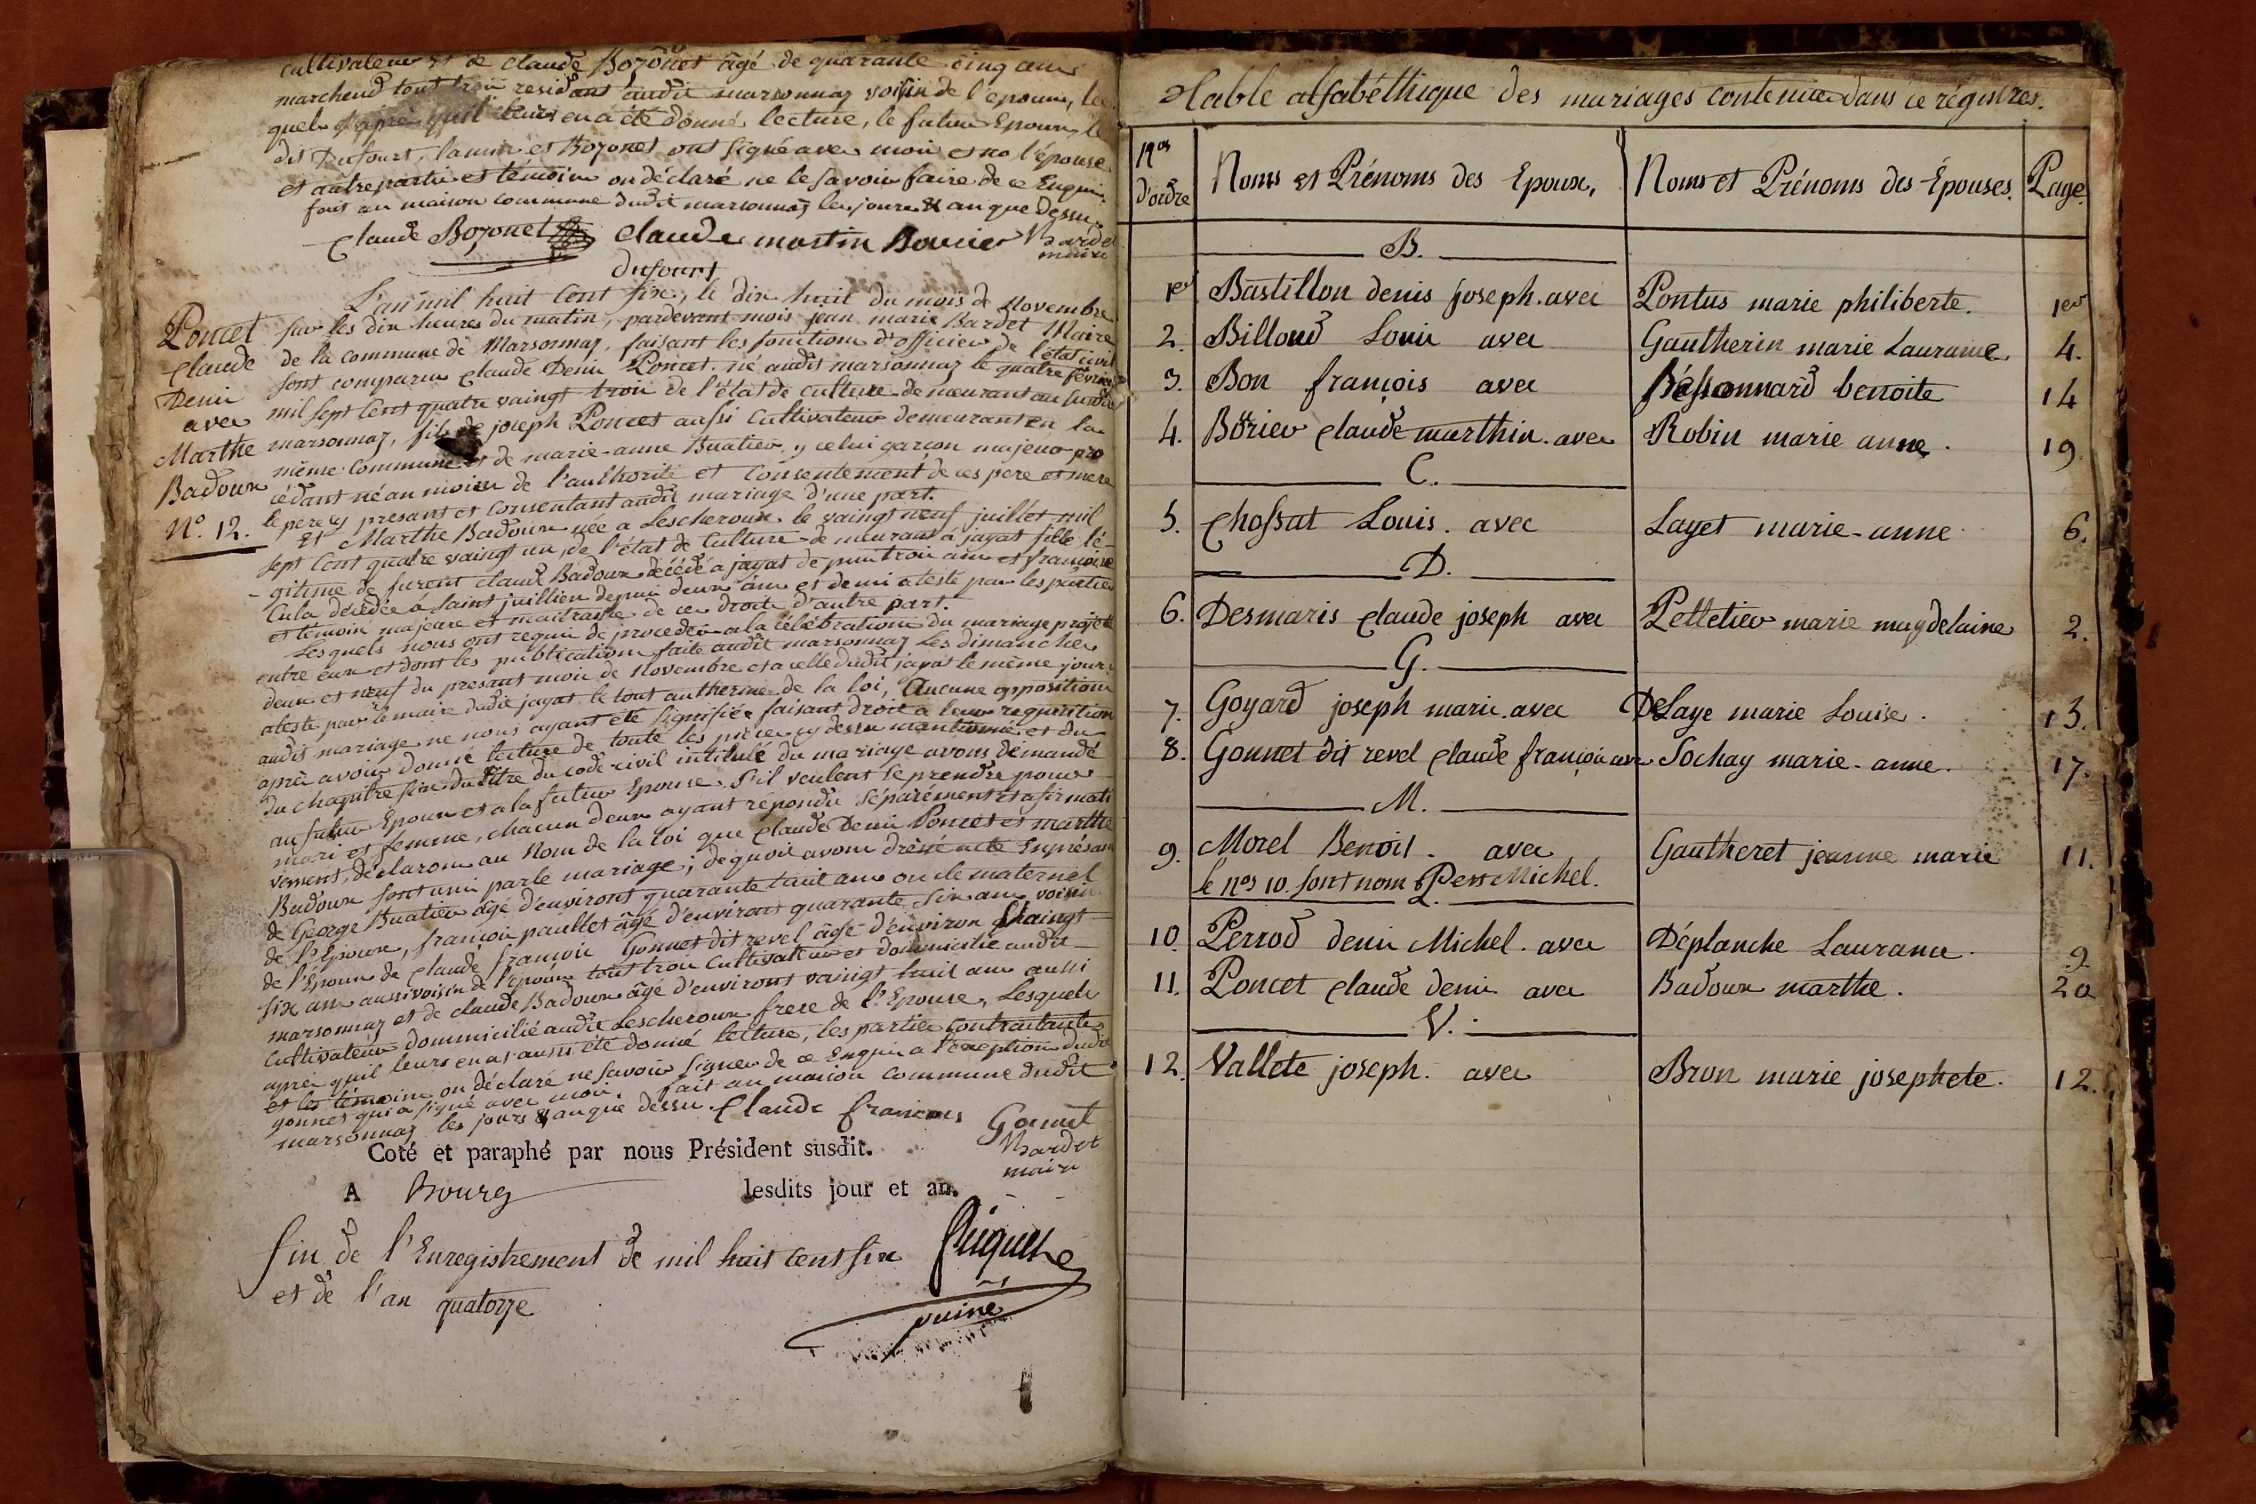 cultivateur et de claude Bozonet âgé de quarante cinq ans
marchend tout trois residant audit marsonnaz voisin de l'epoux, les
quels après qu'il leurs en a été donné lecture, le futur Epoux le
dit Dufourt, et Bozonet ont signé avec moi et no l'épouse
et autre partie et témoin on déclaré ne le savoir faire de ce Enquis
fait au maison commune dudit marsonnaz les jours & an que dessu
claude Bozonet claude martin Bourier Bardet
maire
dufourt
L'an mil huit cent six, le dix huit du mois de Novembre
Poncet
claude
Deni
avec
Marthe
Badoux
N.o 12.
sur les dix heures du matin, pardevant mois jean marie Bardet Maire
de la commune de Marsonnaz, faisant les fonctions d'officier de l'état civil
sont comparus claude Deni Poncet né audit marsonnaz le quatre février
mil sept cent quatre vaingt trois de l'état de culture demeurant au susdit
marsonnaz, fils de joseph Poncet aussi cultivateur demeurant en la
même commune et de marie-anne Buatier, y celui garcon majeur pro
cédant néanmoins de l'authorité et consentement de ces pere et mere
le pere cy présant et consentant audit mariage d'une part.
Et Marthe Badoux née a Lescheroux le vaingt neuf juillet mil
sept cent quatre vaingt un, de l'état de culture demeurant a jayat fille lé-
gitime de furent claude Badoux décédé a jayat depuis trois ans et françoise
Cula décédée a Saint juillien depuis deux ans et demi atesté par les parties
et témoins majeure et maitrasse de ces droits d'autre part.
Lesquels nous ont requis de proceder a la célébration du mariage projeté
entre eux et dont les publications faite audit marsonnaz les dimanches
deux et neuf du présant mois de Novembre et a celle dudit jayat le même jour
atesté par le maire dudit jayat le tout au therme de la loi, Aucune opposition
audit mariage ne nous ayant été signifiée faisant droit a leur requisition
après avoir donné lecture de toute les pièces cy dessu mentionné et du
du chapitre six du titre du code civil intitulé du mariage avons demandé
au futur Epoux et a la futur Epouse s'il veulent se prendre pour
mari et femme, chacun d'eux ayant répondu séparément et afirmati
vement, déclarons au Nom de la loi que claude Deni Poncet et marthe
Badoux sont uni par le mariage; de quoi avons dréssé acte Enprésan
de George Buatier âgé d'environs quarante huit ans oncle maternel
de l'époux, françois paullet âgé d'environs quarante six ans voisin
de l'époux de claude françois Gonnet dit revel âgé d'environ vaingt
six ans aussi voisin de l'époux tout trois cultivateur et domicilié audit
marsonnaz et de claude Badoux âgé d'environs vaingt huit ans aussi
cultivateur dommicilié audit Lescheroux frere de l'Epouse, Lesquels
après qu'il leurs en a aussi été donné lecture, les parties contractante
et les témoins on déclaré ne savoir signer de ce Enquis a l'exeption dudit
gonnet qui a signé avec moi. fait au maison commune dudit
marsonnaz les jours & an que dessu. Claude francois Gonnet
Bardet
maire
Coté et paraphé par nous Président susdit.
A Bourg lesdits jour et an.
fin de l'Enregistrement de mil huit cent six
et de l'an quatorze
Table alfabéthique des mariages contenue dans ce régistres.
Nos d'ordre Noms et Prénoms des Epoux, Noms et Prénoms des Épouses. Page.
B.
1er Bastillon denis joseph avec Pontus marie philiberte. 1er
2. Billoud Louis avec Gautherin marie Lauraine. 4.
3. Bon françois avec Béssonnard benoite 14
4. Börier claude marthin avec Robin marie anne. 19
C.
5. Chossat Louis. avec Layet marie-anne 6.
D.
6. Desmaris claude joseph avec Pelletier marie magdelaine 2.
G.
7. Goyard joseph marie avec DeLaye marie Louise. 13.
8. Gonnet dit revel claude françois avec Sochay marie-anne. 17.
M.
9. Morel Benoit. avec Gautheret jeanne marie 11.
le nos 10 sont nom Perr Michel.
P.
10. Perrod deni Michel. avec Déplanche Laurance. 9
11. Poncet claude deni avec Badoux marthe. 20
V.
12. Vallete joseph. avec Bron marie josephete. 12.